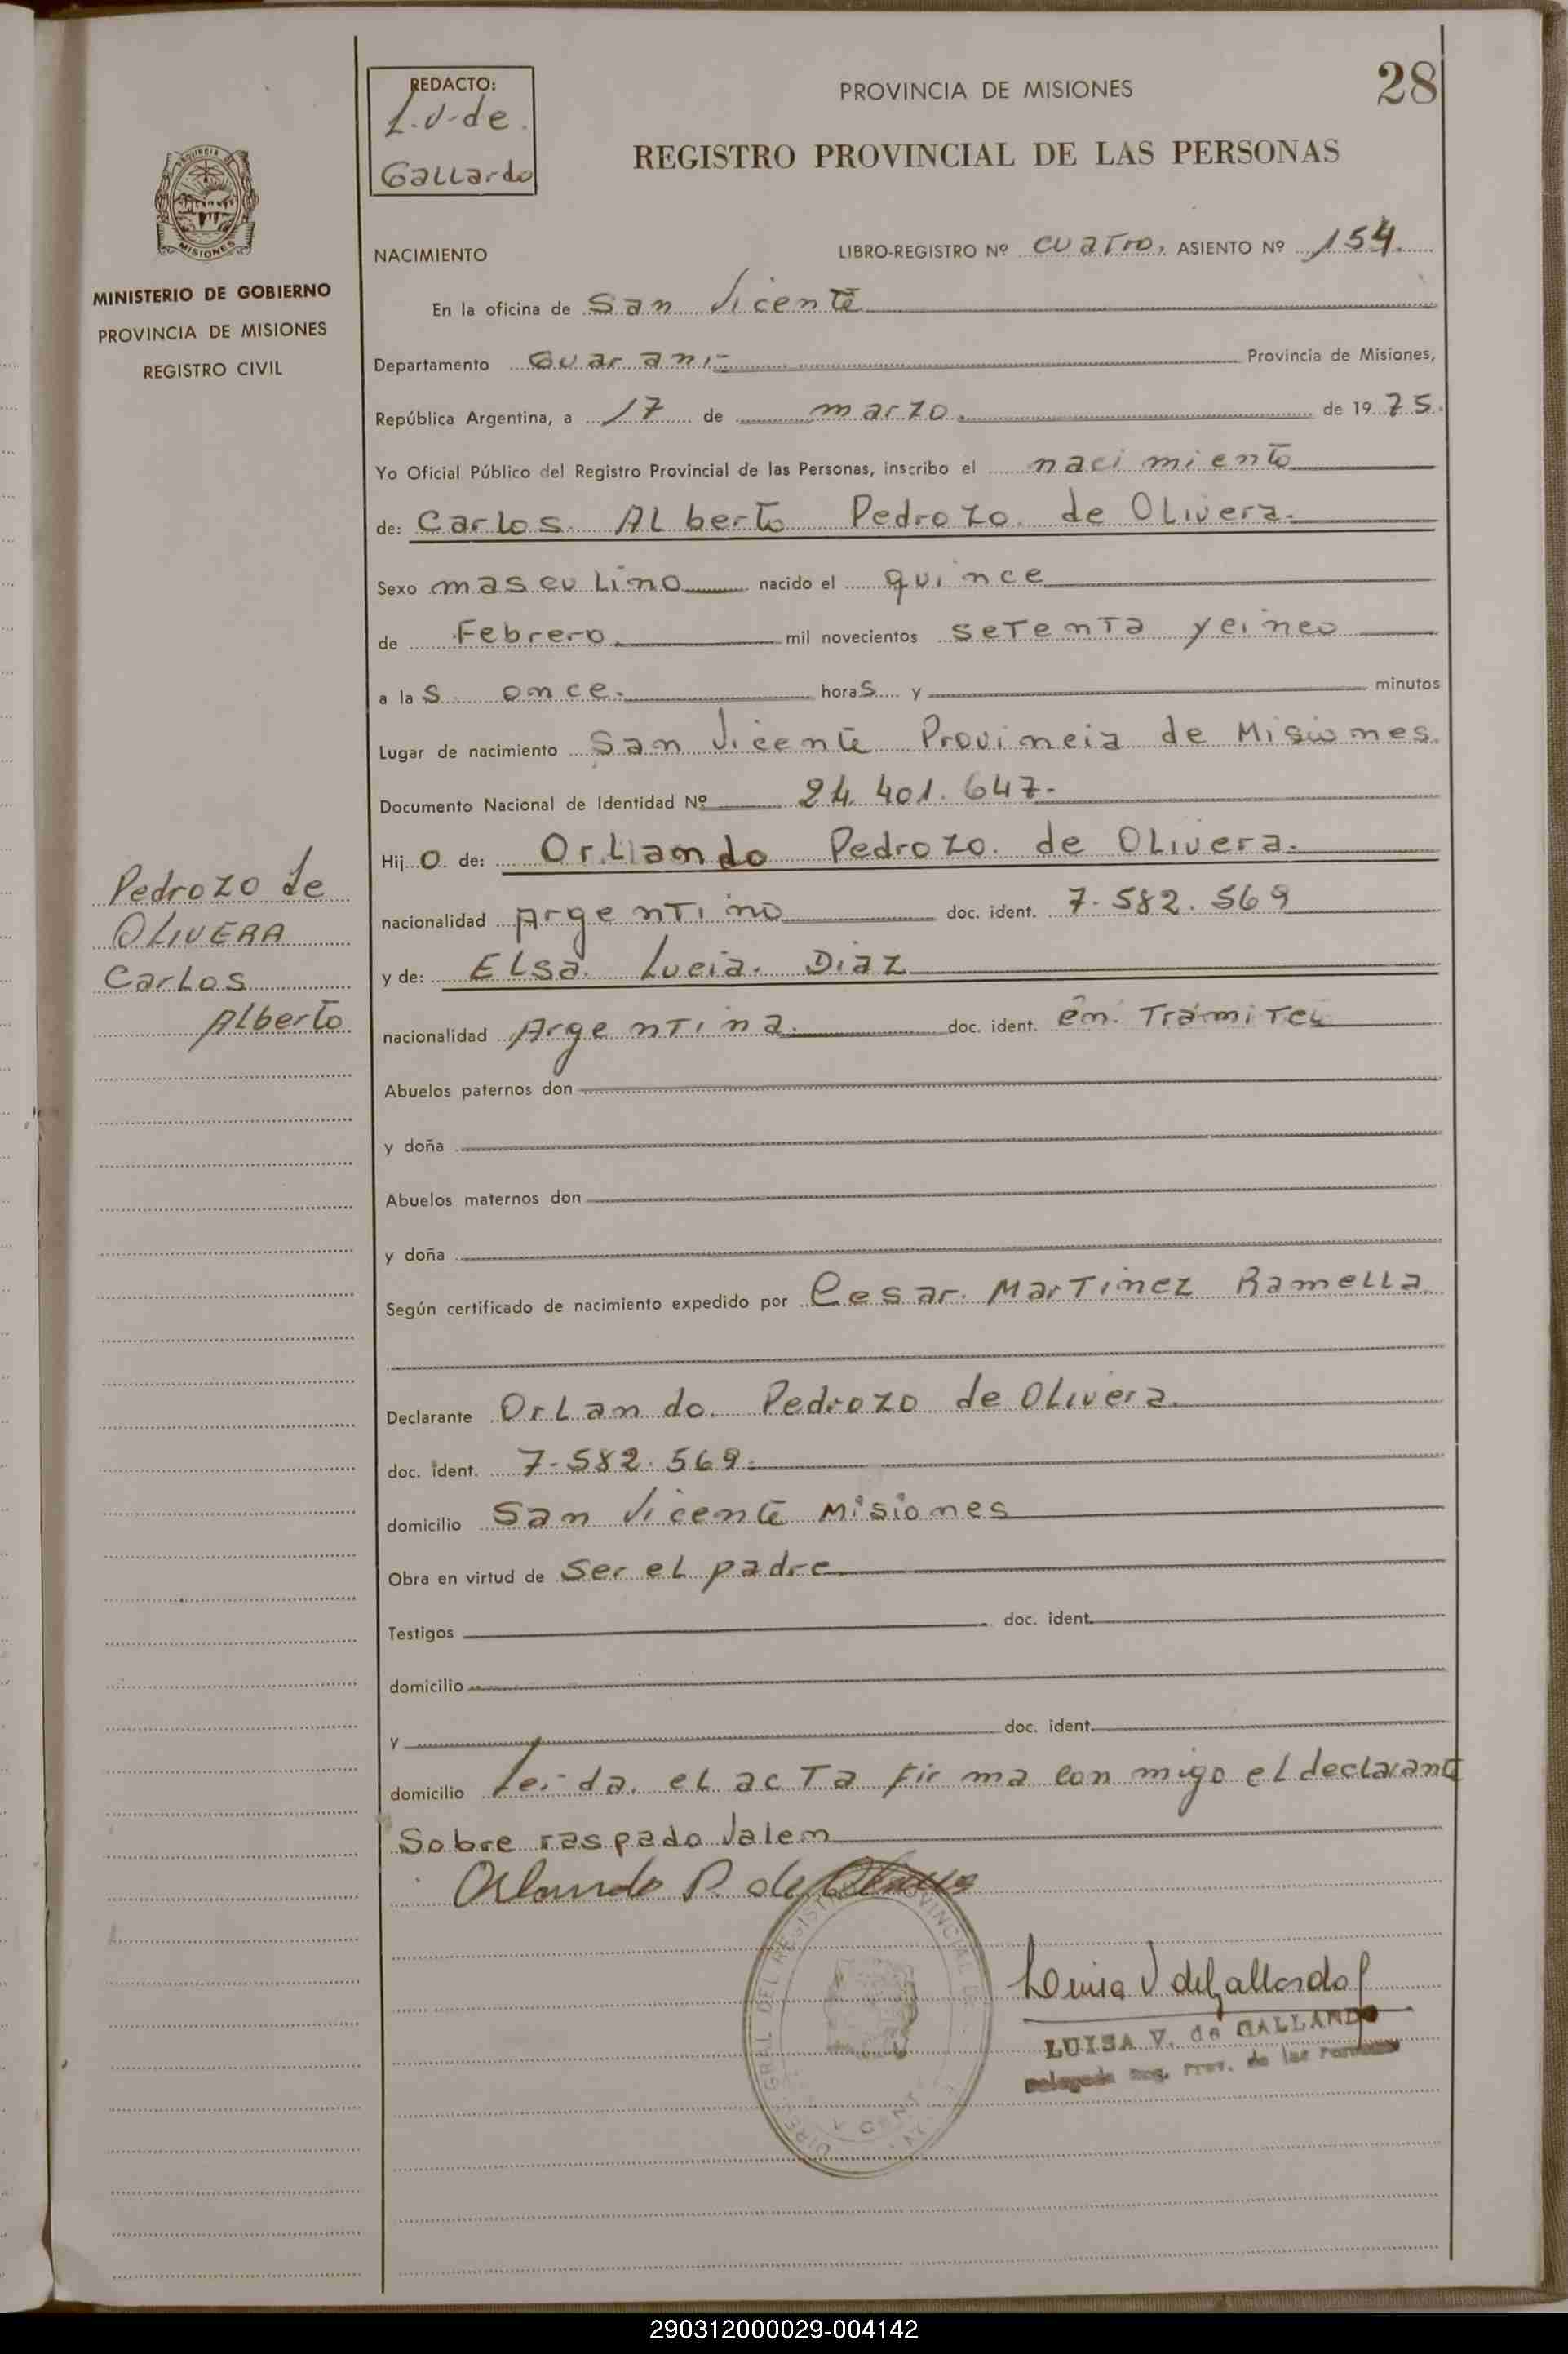 28
REDACTO:
L.V. de
Gallardo
PROVINCIA DE MISIONES
REGISTRO PROVINCIAL DE LAS PERSONAS
MISIONES
MINISTERIO DE GOBIERNO
PROVINCIA DE MISIONES
REGISTRO CIVIL
NACIMIENTO LIBRO-REGISTRO Nº cuatro, ASIENTO Nº 154.
En la oficina de San Vicente
Departamento Guarani- Provincia de Misiones,
República Argentina, a 17 de marzo. de 1975.
Yo Oficial Público del Registro Provincial de las Personas, inscribo el nacimiento
de: Carlos Alberto Pedrozo de Olivera.
Sexo masculino nacido el quince
de Febrero. mil novecientos setenta y cinco
a las once. horas y minutos
Lugar de nacimiento San Vicente Provincia de Misiones.
Documento Nacional de Identidad Nº 24.401.647.
Hijo de: Orllando Pedrozo. de Olivera.
nacionalidad Argentino doc. ident. 7.582.569
y de: Elsa. Lucia. Diaz
nacionalidad Argentina. doc. ident. en Tramite
Pedrozo de
OLIVERA
Carlos
Alberto
Abuelos paternos don
y doña
Abuelos maternos don
y doña
Según certificado de nacimiento expedido por Cesar. Martinez Ramella
Declarante Orlando. Pedrozo de Olivera.
doc. ident. 7-582.569.
domicilio San Vicente Misiones
Obra en virtud de ser el padre.
Testigos doc. ident.
domicilio
y doc. ident.
domicilio Leida. el acta firma conmigo el declarante
Sobre raspado Valem
Orlando P. de Olivera
Luisa V de Gallardo
LUISA V. de GALLARDO
Delegada Reg. Prov. de las Personas
290312000029-004142